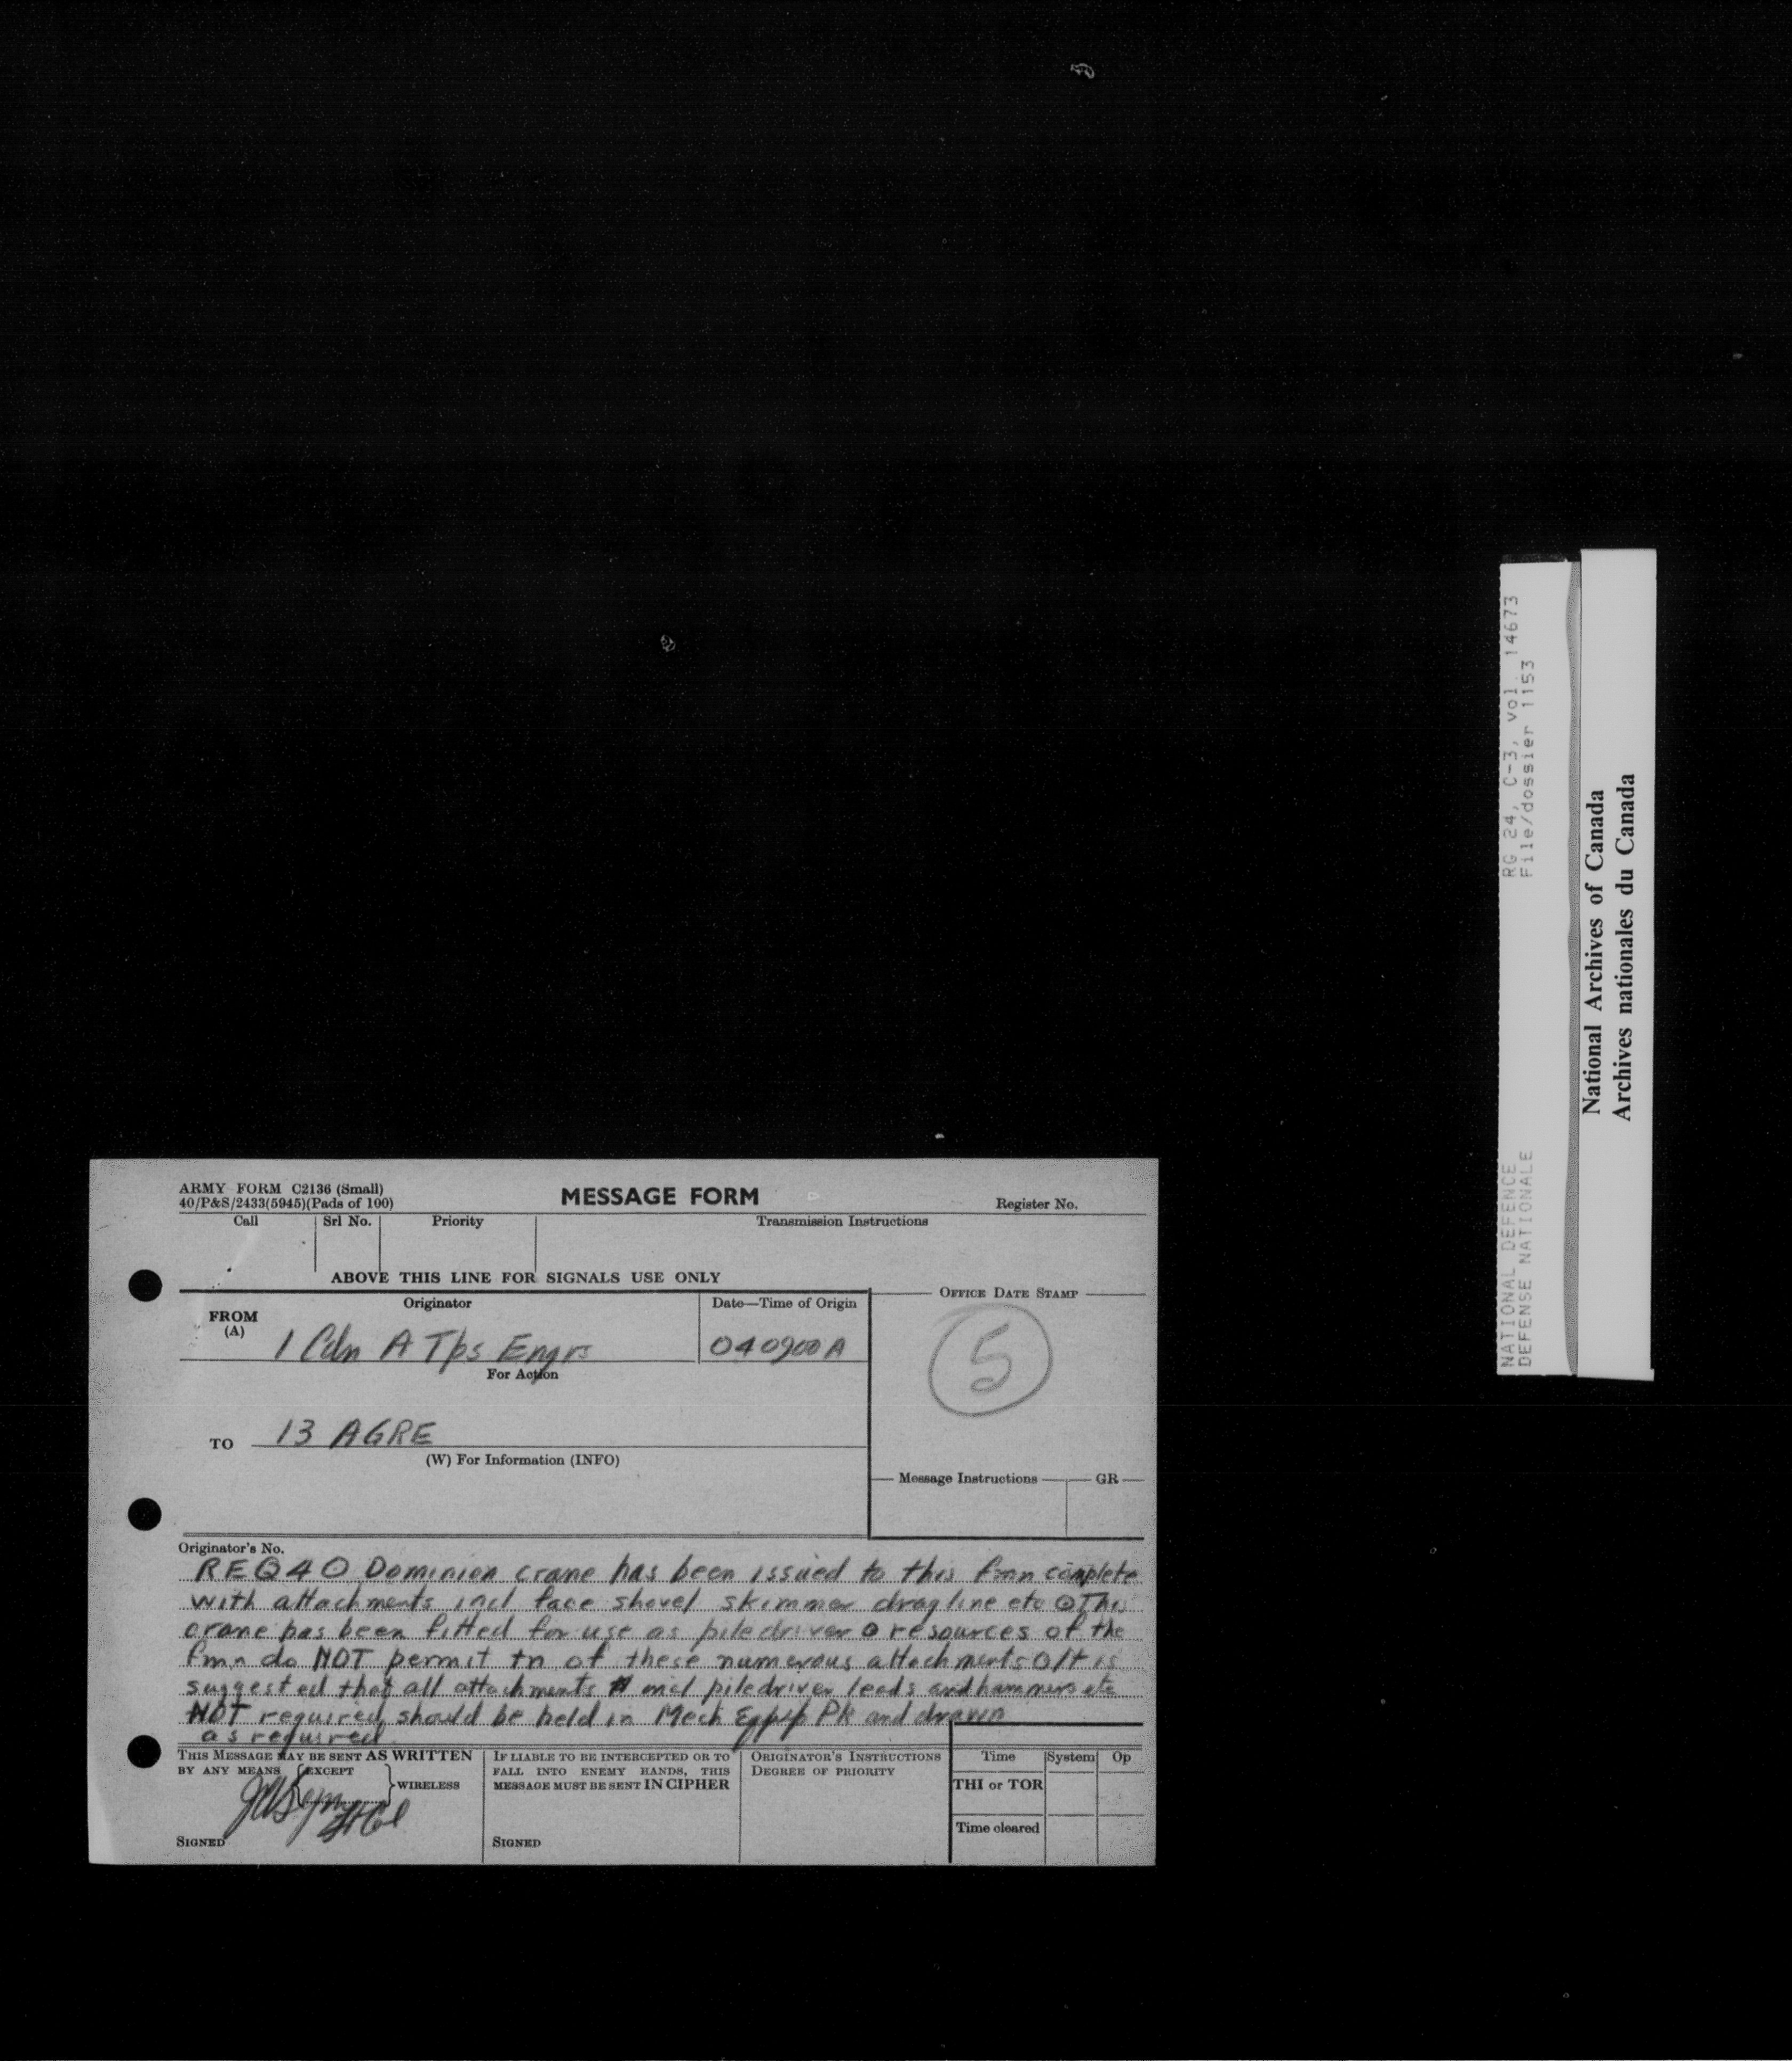 ARMY FORM C2136 (Small)
40/P&S/2433(5945)(Pads of 100)
MESSAGE FORM
Register No.
Call
Srl No.
Priority
Transmission Instructions
ABOVE THIS LINE FOR SIGNALS USE ONLY
FROM
(A)
Originator
Date—Time of Origin
OFFICE DATE STAMP
1 Cdn A Tps Engrs
040900A
5
For Action
TO
13 AGRE
(W) For Information (INFO)
Message Instructions
GR
Originator's No.
REQ40 Dominion crane has been issued to this fmn complete
with attachments incl face shovel skimmer dragline etc ⊙ This
crane has been fitted for use as piledriver o resources of the
fmn do NOT permit tn of these numerous attachments O It is
suggested that all attachments incl piledriver leads and hammers etc
NOT required should be held in Mech Equip Pk and drawn
as required
THIS MESSAGE MAY BE SENT AS WRITTEN
BY ANY MEANS EXCEPT WIRELESS
Lt Col
SIGNED
IF LIABLE TO BE INTERCEPTED OR TO
FALL INTO ENEMY HANDS, THIS
MESSAGE MUST BE SENT IN CIPHER
SIGNED
ORIGINATOR'S INSTRUCTIONS
DEGREE OF PRIORITY
Time
System
Op
THI or TOR
Time cleared
RG 24, C-3, vol. 14673
File/dossier 1153
NATIONAL DEFENCE
DEFENSE NATIONALE
National Archives of Canada
Archives nationales du Canada